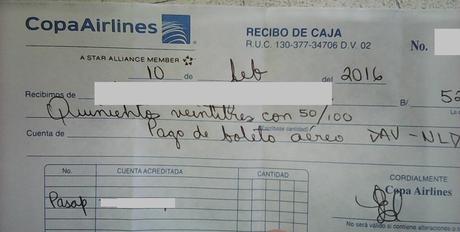 CopaAirlines
RECIBO DE CAJA
R.U.C. 130-377-34706 D.V. 02
No.
A STAR ALLIANCE MEMBER
10 de feb del 2016
Recibimos de B/ 52
Quinientos veintitres con 50/100
(Escríbase cantidad)
Cuenta de Pago de boleto aéreo DAV-NLD
No. CUENTA ACREDITADA CANTIDAD
CORDIALMENTE
Copa Airlines
Pasap
No será válido si contiene alteraciones o